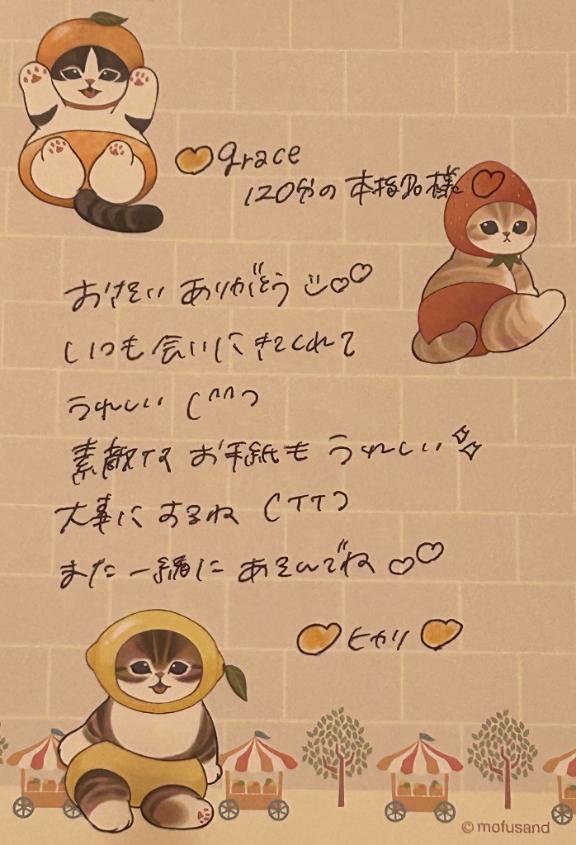 grace
120分の 本指名様♡
おさそい ありがとう ♡♡
いつも 会いに きてくれて
うれしい (^^)
素敵な お手紙も うれしい
大事に するね (TT)
また 一緒に あそんでね ♡♡
ヒカリ
© mofusand